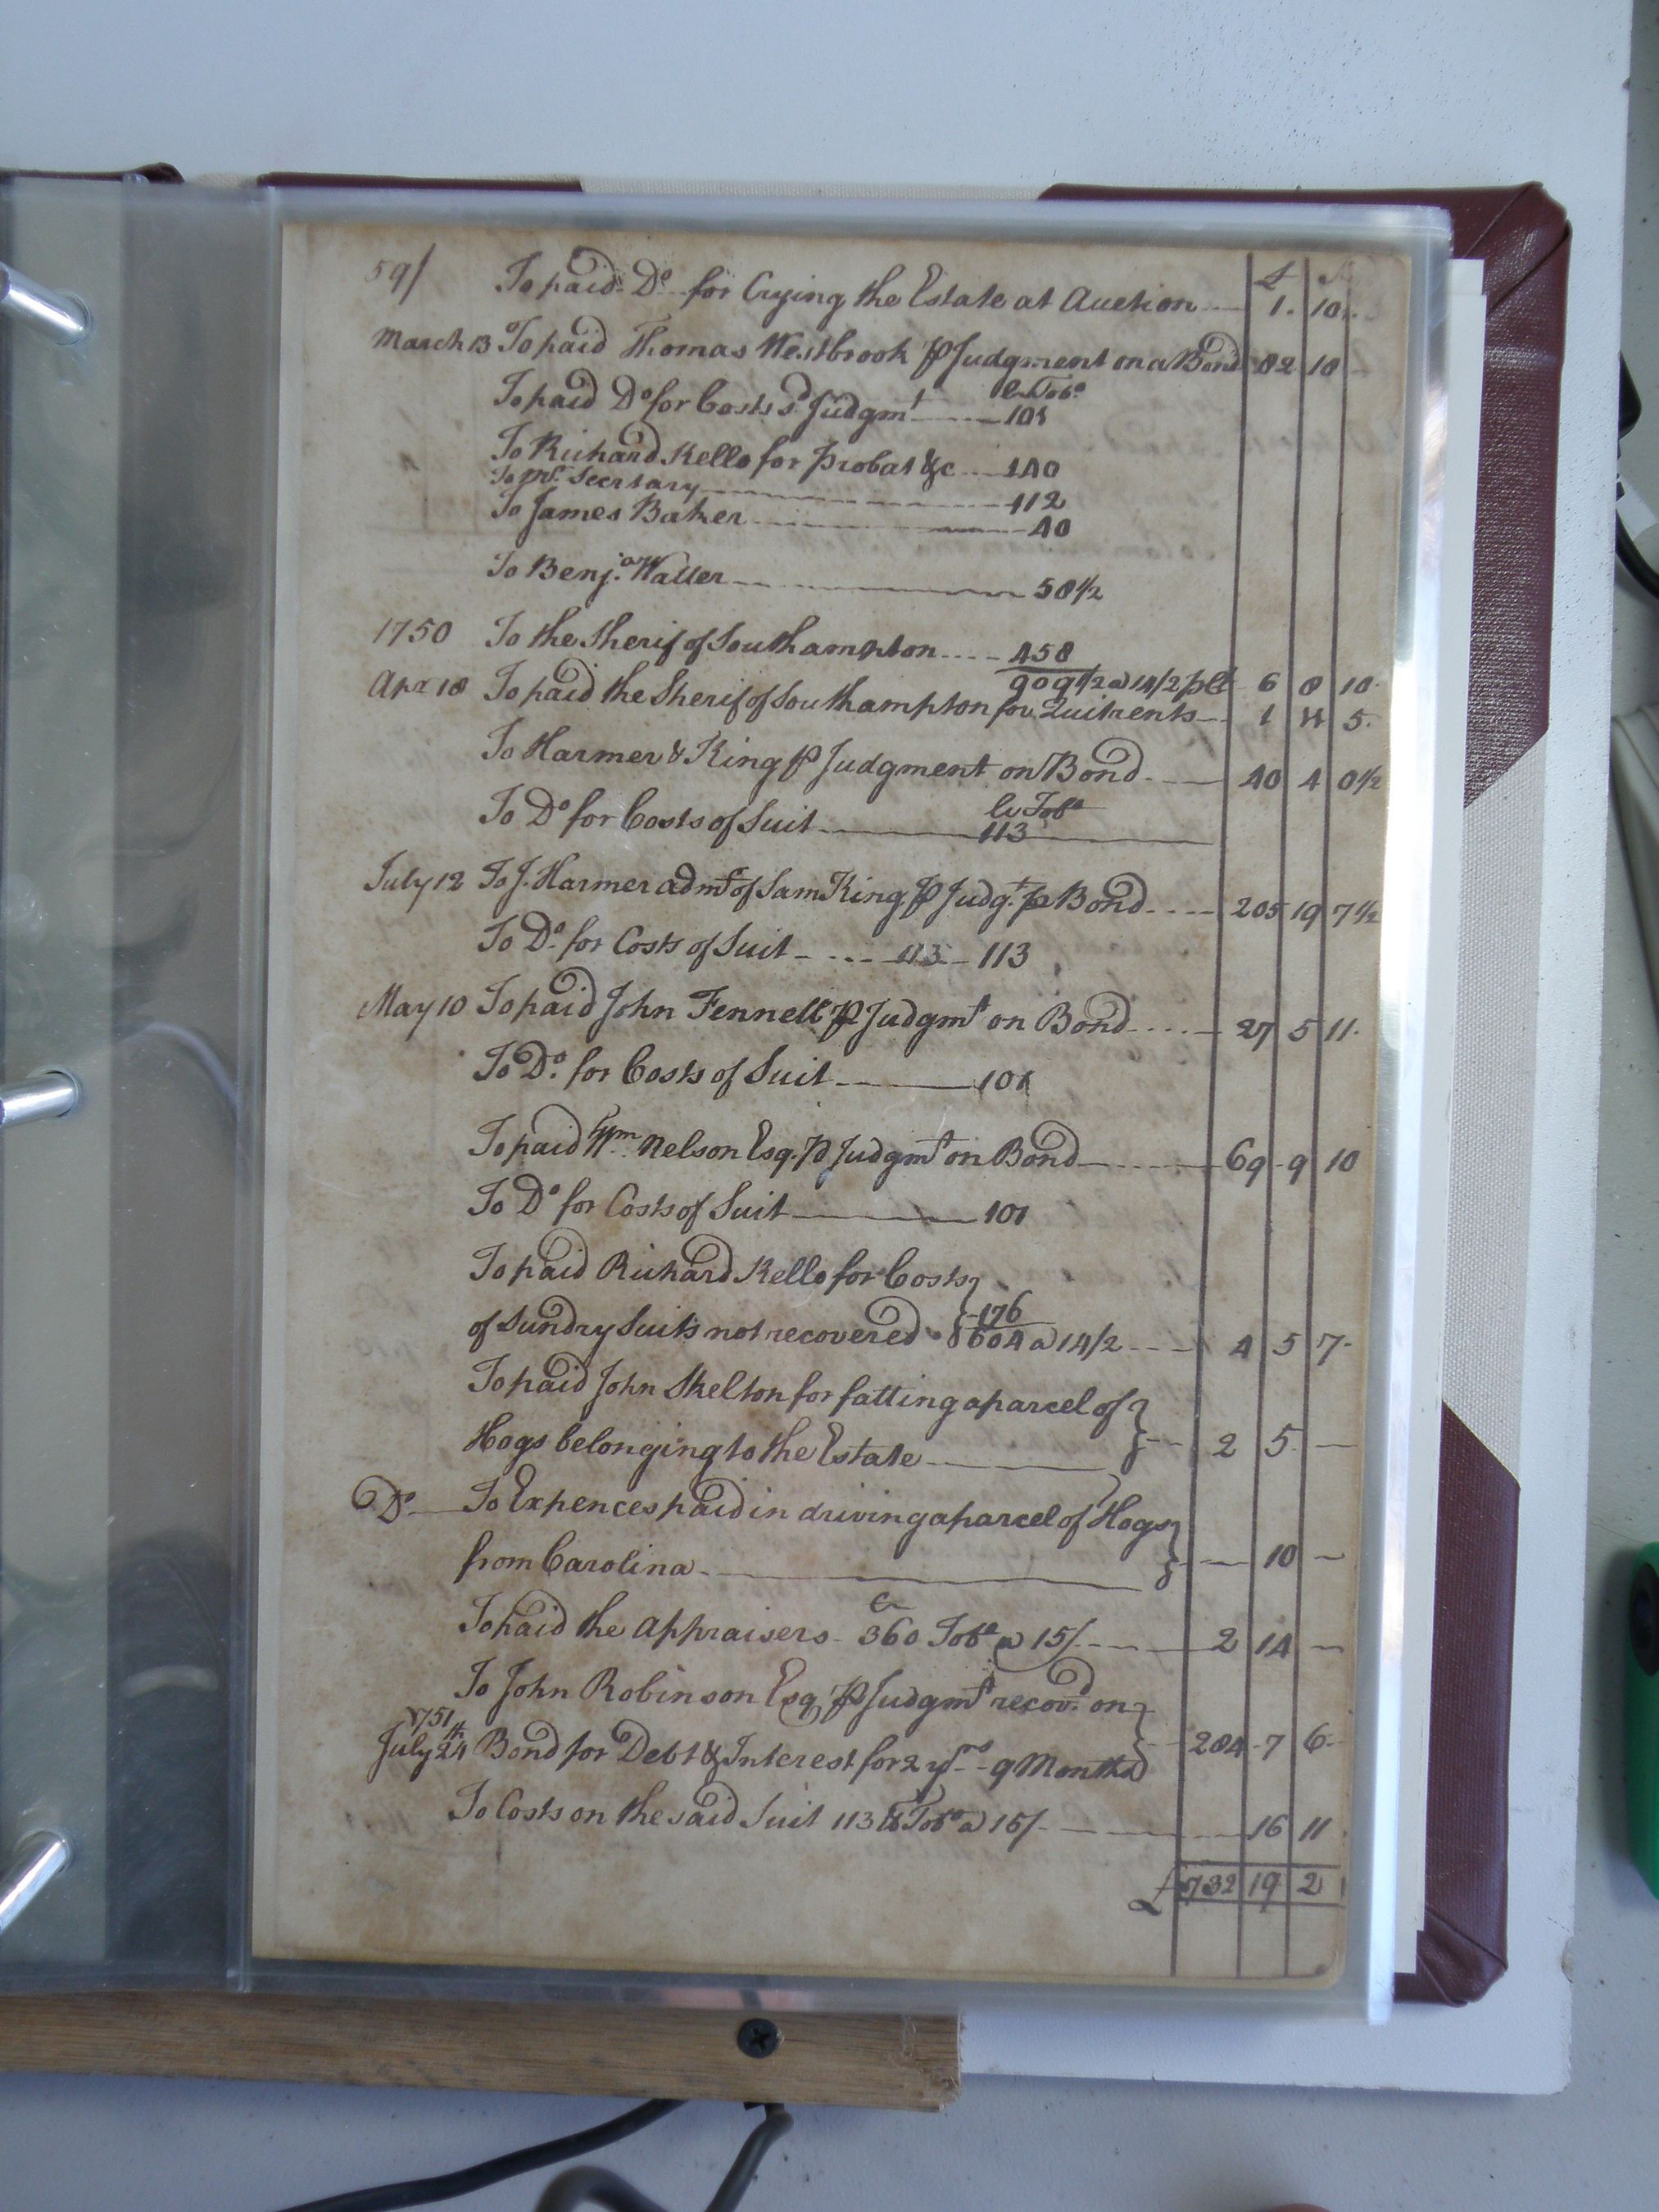 59/ To paid Do for Crying the Estate at Auction 1. 10.
£ S
March 13 To paid Thomas Westbrook P Judgment on a Bond 82 10 -
lb Tobo
To paid Do for Costs sd Judgmt 108
To Richard Kello for Probat &c 140
To Mr Secrtary 112
To James Baker 40
To Benja. Waller 50 1/2
1750 To the Sherif of Southampton 458
909 1/2 a 14/2 pCt 6 8 10
Apr 18 To paid the Sherif of Southampton for Quitrents 1 5.
To Harmer & King P Judgment on Bond 40 4 0 1/2
lb Tobo
To Do for Costs of Suit 113
July 12 To J. Harmer admr of Sam King P Judgt. P Bond 205 19 7 1/2
To Do. for Costs of Suit 113 113
May 10 To paid John Fennell P Judgmt on Bond 27 5 11.
To Do. for Costs of Suit 101
To paid Wm Nelson Esq. P Judgmt on Bond 69 9 10
To Do for Costs of Suit 101
To paid Richard Kello for Costs
176
of Sundry Suits not recovered 604 a 14/2 4 5 7
To paid John Skelton for fatting a parcel of
Hogs belonging to the Estate 2 5 -
Do To Expences paid in driving a parcel of Hogs
from Carolina - 10 -
To paid the Appraisers 360 Tobo a 15/ 2 14 -
To John Robinson Esq P Judgmt recovd. on
1751
July 24th Bond for Debt & Interest for 2 yrs 9 Months 204 7 6
To Costs on the said Suit 113 lb Tobo a 15/ 16 11
£ 732 19 2